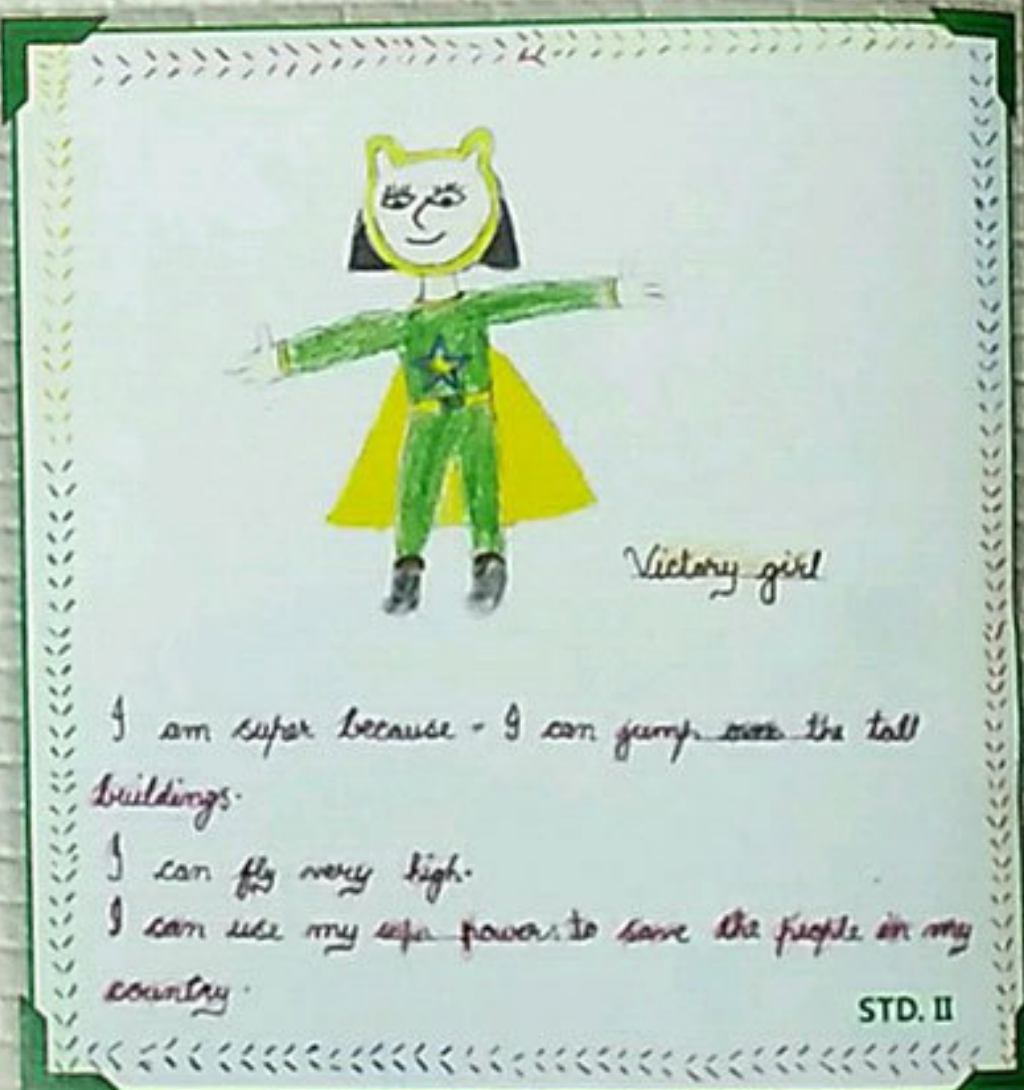 Victory girl
I am super because - I can jump over the tall
buildings.
I can fly very high.
I can use my powers to save the people in my
country.
STD. II